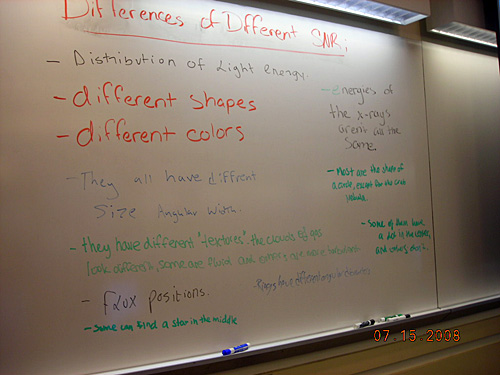 Differences of Different SNR;
- Distribution of Light energy.
- different shapes
- different colors
- They all have diffrent
Size Angular Width.
- they have different "textures" the clouds of gas
look different, some are fluid and others are more turbulent
- Flux positions.
- Some can find a star in the middle
- energies of
the x-rays
aren't all the
same.
- Most are the shape of
a circle, except for the crab
nebula.
- Some of them have
a dot in the center,
and others don't.
- X-rays have different angular distances
07.15.2008